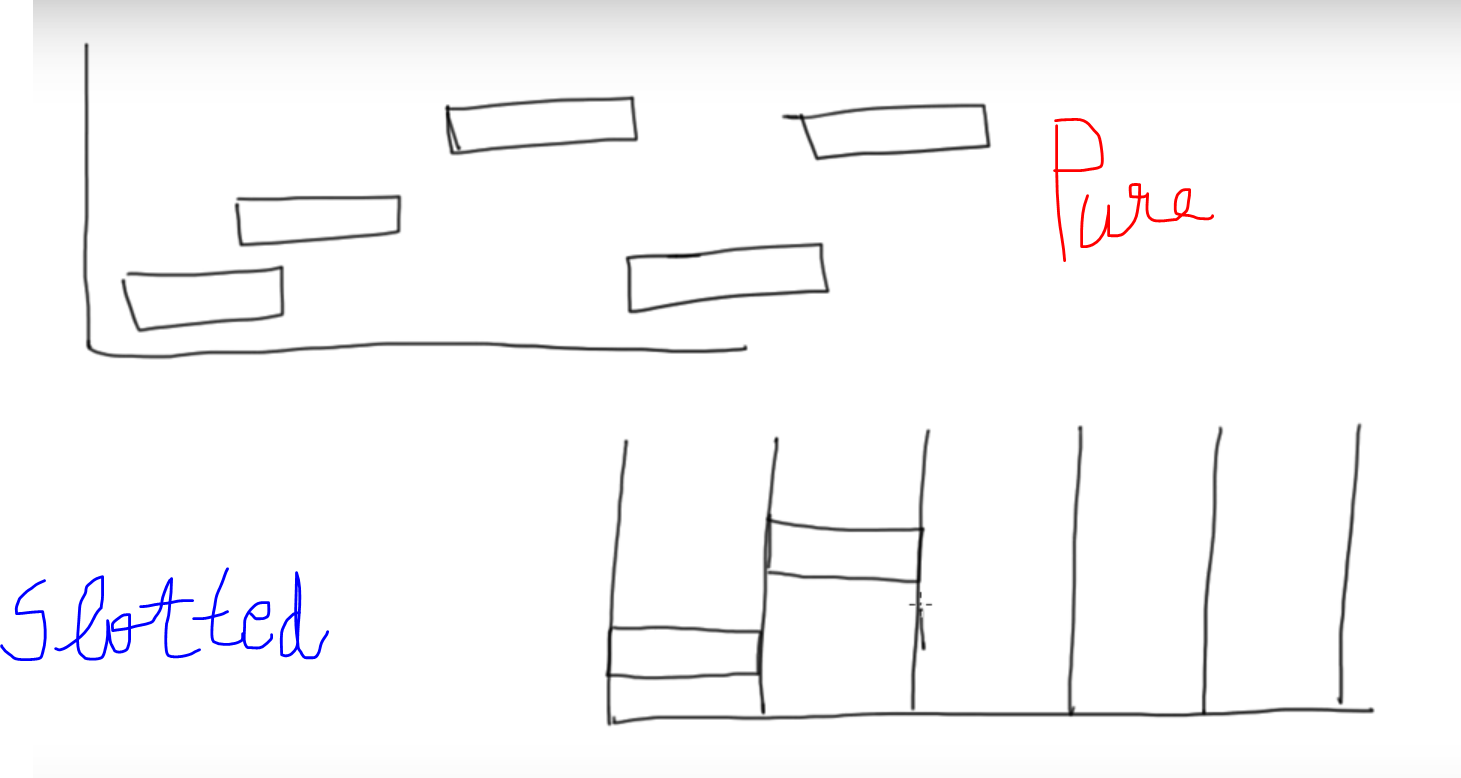 Pure
Slotted